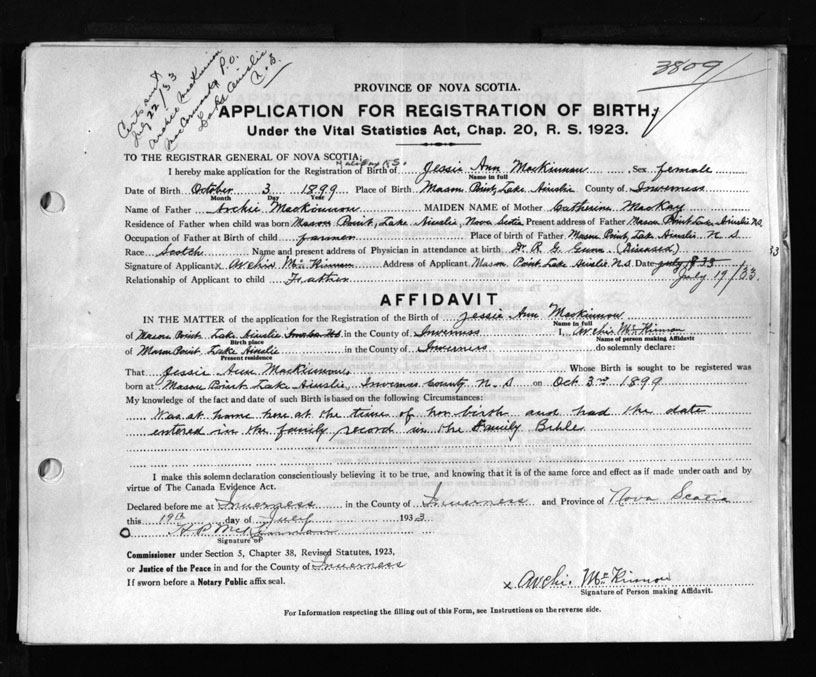 3809
Cert sent
July 22/33
Archie MacKinnon
P.O.
Lake Ainslie
C.B.
PROVINCE OF NOVA SCOTIA.
APPLICATION FOR REGISTRATION OF BIRTH,
Under the Vital Statistics Act, Chap. 20, R. S. 1923.
TO THE REGISTRAR GENERAL OF NOVA SCOTIA; Halifax N.S.
I hereby make application for the Registration of Birth of Jessie Ann MacKinnon Sex female
Name in full
Date of Birth October 3 1899 Place of Birth Mason Point, Lake Ainslie County of Inverness
Month Day Year
Name of Father Archie MacKinnon MAIDEN NAME of Mother Catherine MacKay
Residence of Father when child was born Mason Point, Lake Ainslie, Nova Scotia Present address of Father Mason Point Lake Ainslie N.S.
Occupation of Father at Birth of child farmer Place of birth of Father Mason Point, Lake Ainslie N S
Race Scotch Name and present address of Physician in attendance at birth Dr. R G Gunn (Diseased)
Signature of Applicant x Archie McKinnon Address of Applicant Mason Point Lake Ainslie N.S. Date July 8 33
July 19/33
Relationship of Applicant to child Father
AFFIDAVIT
IN THE MATTER of the application for the Registration of the Birth of Jessie Ann MacKinnon
Name in full
of Mason Point Lake Ainslie in the County of Inverness I, Archie McKinnon
Birth place Name of person making Affidavit
of Mason Point, Lake Ainslie in the County of Inverness do solemnly declare:
Present residence
That Jessie Ann MacKinnon Whose Birth is sought to be registered was
born at Mason Point Lake Ainslie, Inverness County N. S on Oct 3rd 1899
My knowledge of the fact and date of such Birth is based on the following Circumstances:
Was at home here at the time of her birth and had the date
entered in the family record in the Family Bible
I make this solemn declaration conscientiously believing it to be true, and knowing that it is of the same force and effect as if made under oath and by
virtue of The Canada Evidence Act.
Declared before me at Inverness in the County of Inverness and Province of Nova Scotia
this 19th day of July 1933
Signature of
Commissioner under Section 5, Chapter 38, Revised Statutes, 1923,
or Justice of the Peace in and for the County of Inverness
If sworn before a Notary Public affix seal.
x Archie McKinnon
Signature of Person making Affidavit.
For Information respecting the filling out of this Form, see Instructions on the reverse side.